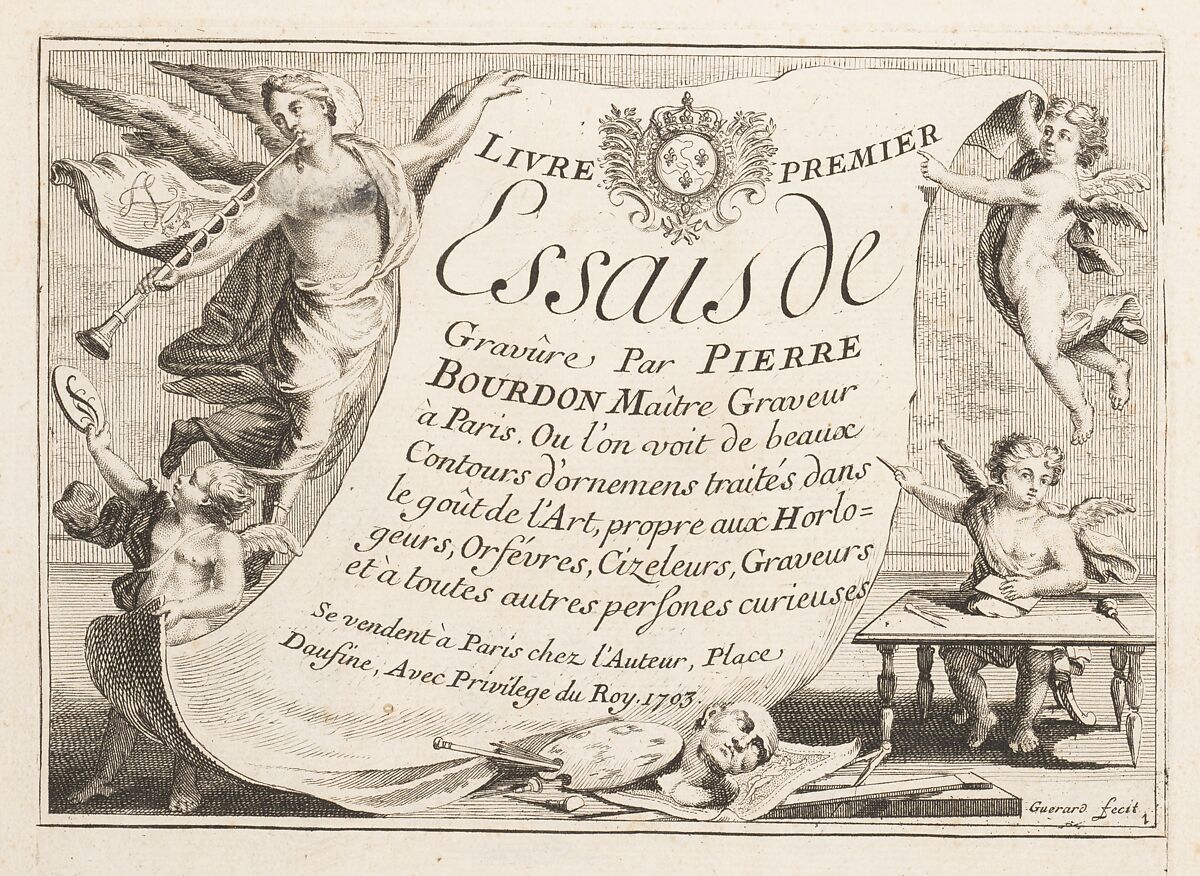 LIVRE PREMIER
Essais de
Gravûre Par PIERRE
BOURDON Maître Graveur
à Paris. Ou l'on voit de beaux
Contours d'ornemens traités dans
le goût de l'Art, propre aux Horlo=
geurs, Orfévres, Cizeleurs, Graveurs
et à toutes autres perſones curieuses
Se vendent à Paris chez l'Auteur, Place
Daufine, Avec Privilege du Roy. 1703.
Guerard fecit
1